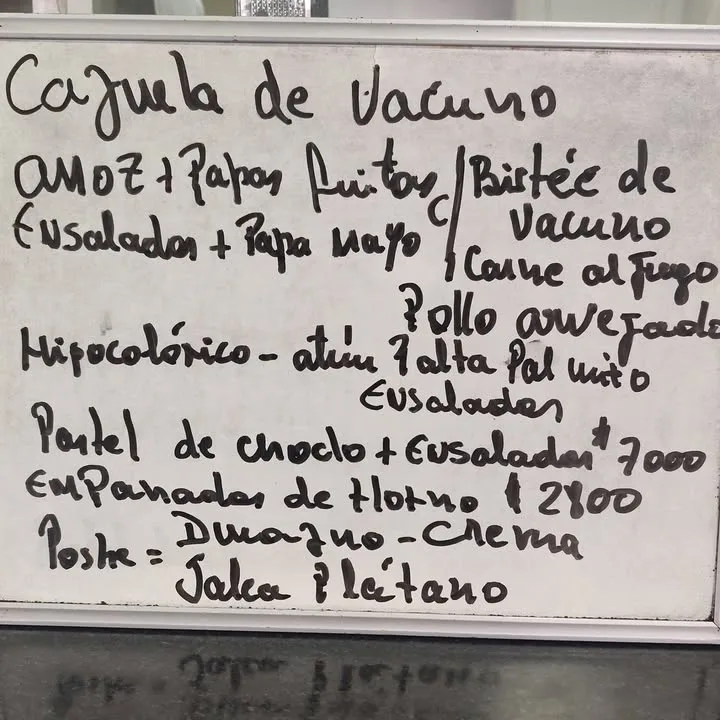 Cazuela de Vacuno
Arroz + Papas fritas c/ Bistéc de
Ensaladas + Papa mayo Vacuno
Carne al Jugo
Pollo arvejado
Hipocolórico - atún Palta Palmito
Ensaladas
Pastel de choclo + Ensaladas $7000
Empanadas de Horno $2800
Postre = Durazno - Crema
Jalea Plátano